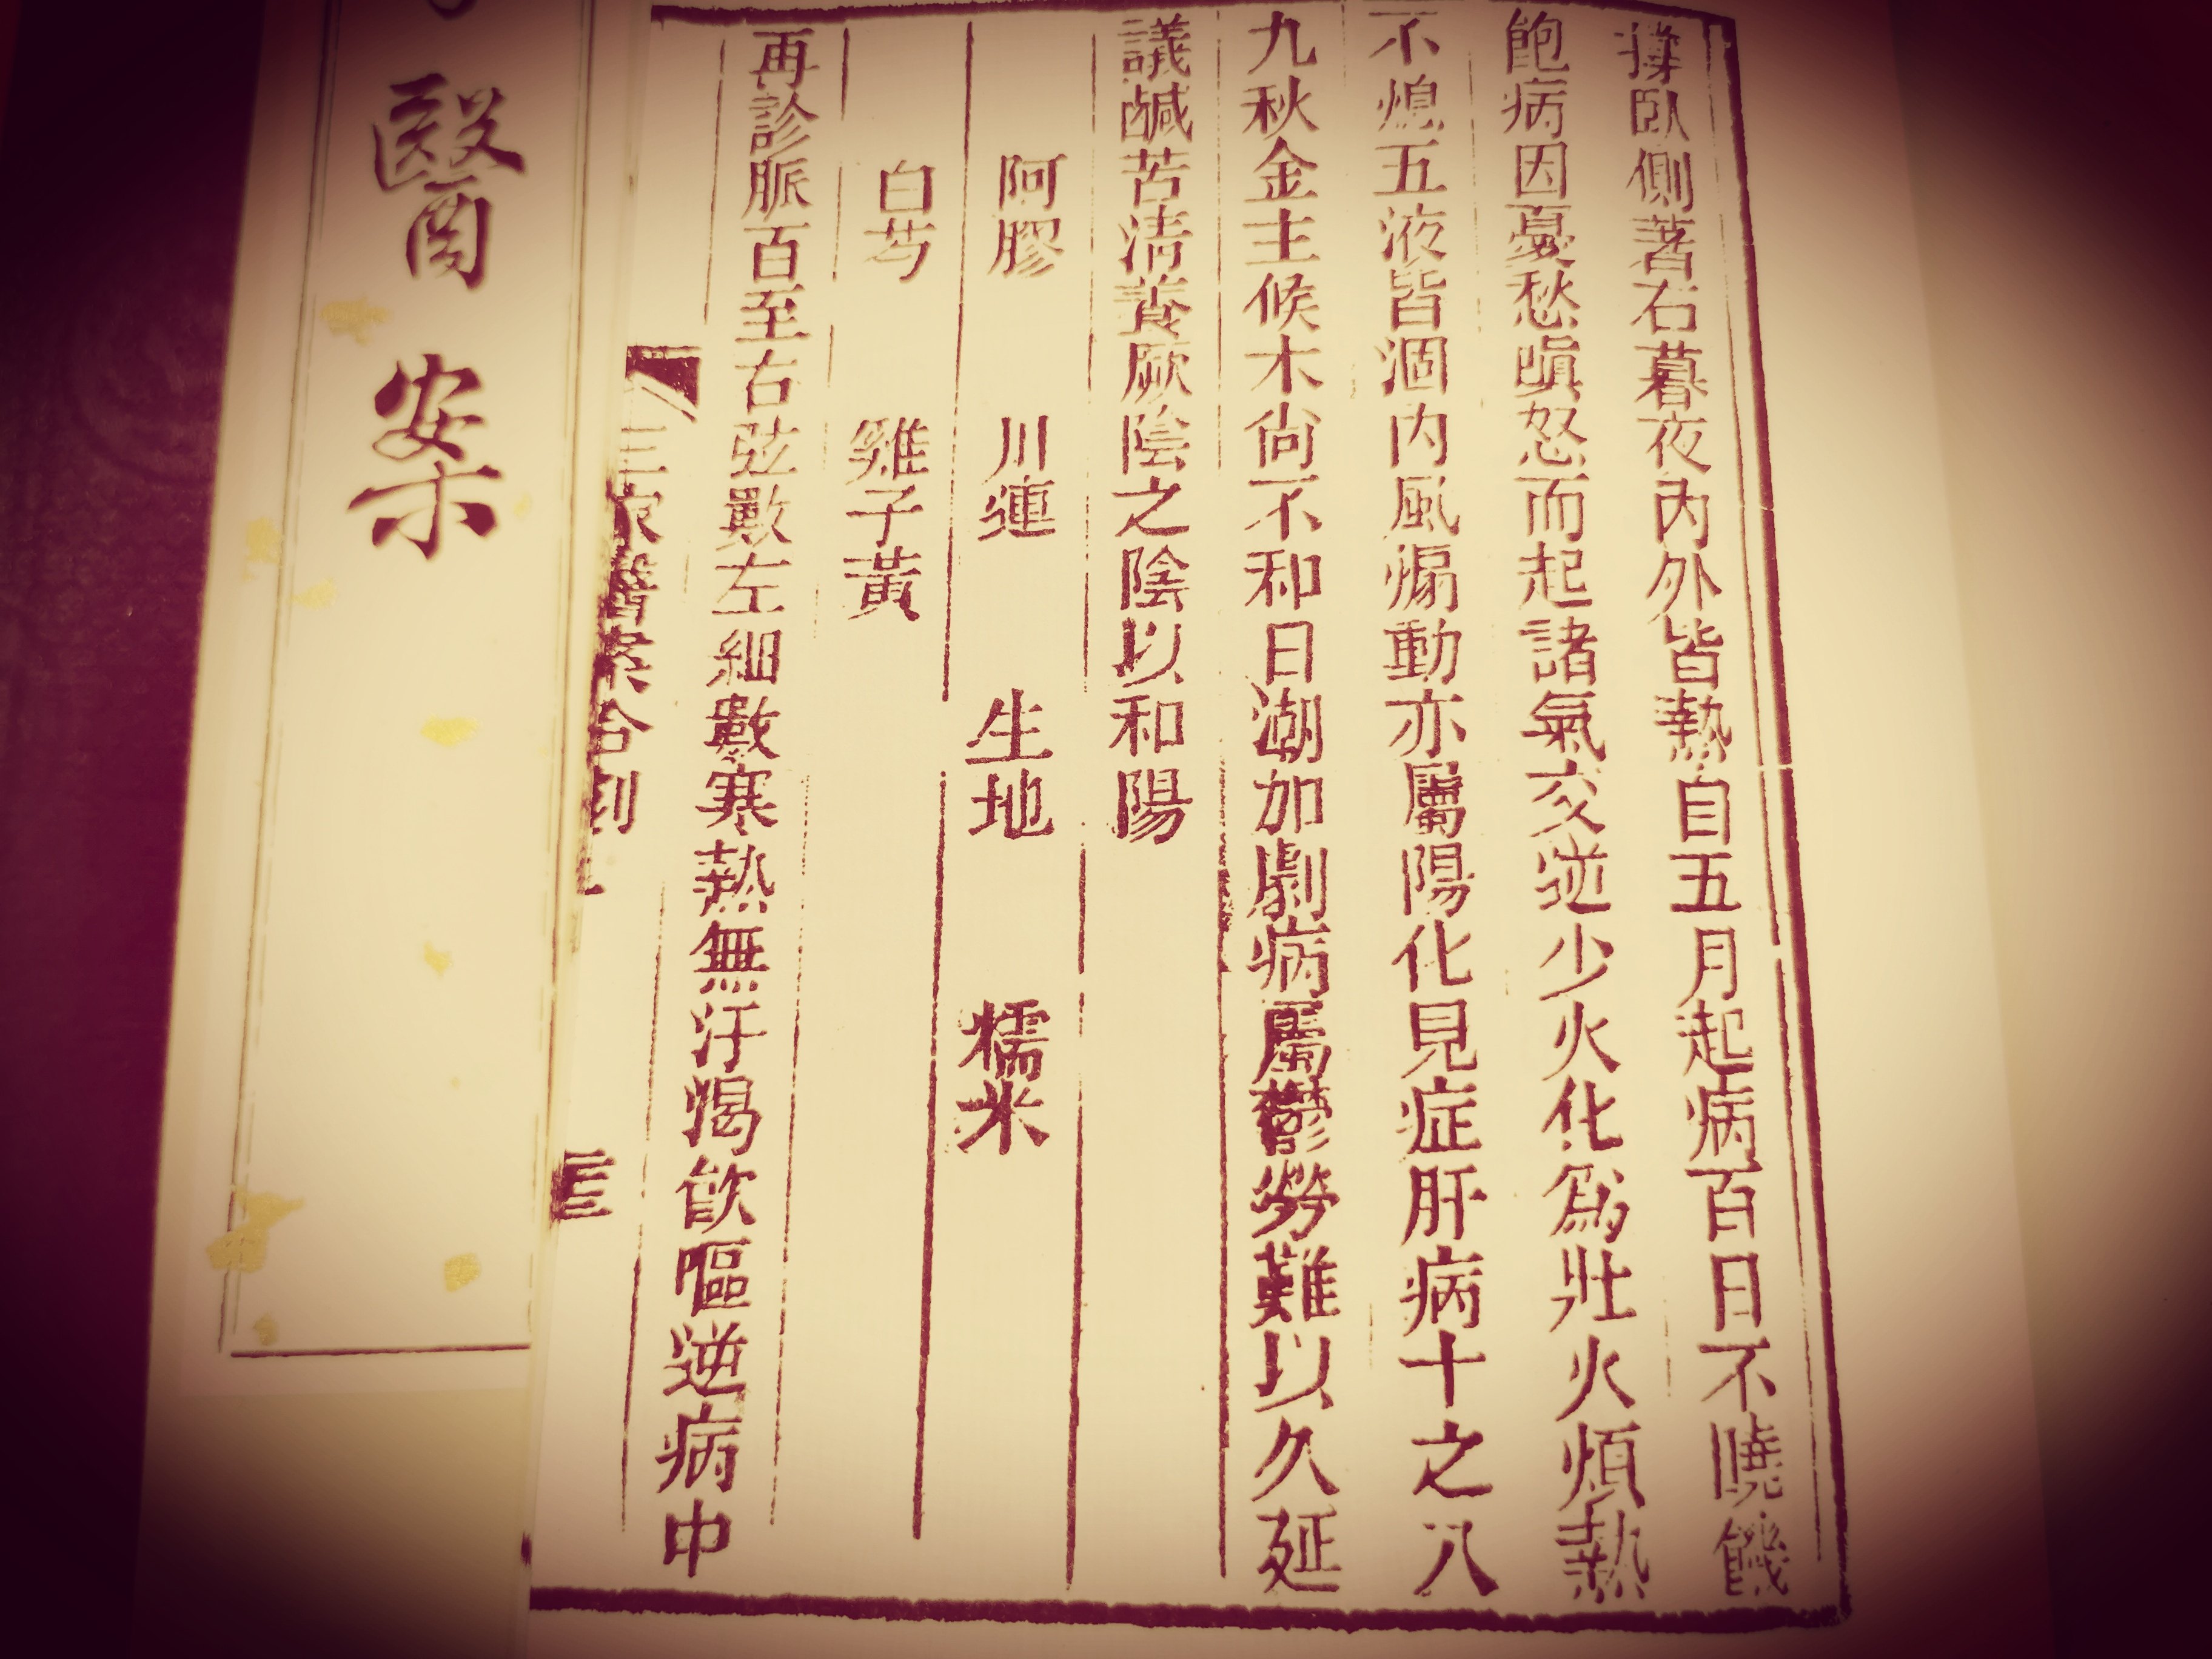 攆臥側著右暮夜內外皆熱自五月起病百日不曉饑
飽病因憂愁嗔怒而起諸氣交逆少火化爲壯火煩熱
不熄五液皆涸內風煽動亦屬陽化見症肝病十之八
九秋金主候木尙不和日潮加劇病屬鬱勞難以久延
議鹹苦清養厥陰之陰以和陽
阿膠 川連 生地 糯米
白芍 雞子黃
再診脈百至右弦數左細數寒熱無汗渴飲嘔逆病中
三家醫案合刻
醫案